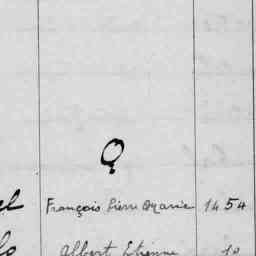 Q
François Pierre Marie 1454
Albert Etienne